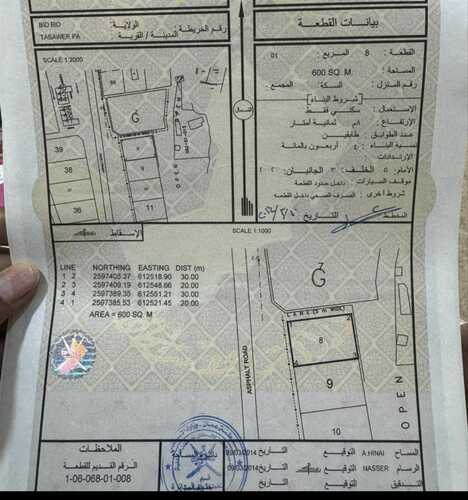 BID BID
TASAWER PA
الولاية:
المدينة / القرية:
رقم الخريطة:
بيانات القطعة
SCALE 1:2000
القطعة: 8 المربع:
المساحة: 600 SQ. M
رقم المنزل: السكة: المجمع:
[شروط البناء]
الاستعمال: سكني فقط
الإرتفاع: ٨م ثمانية أمتار
عدد الطوابق: طابقين
نسبة البناء: ٤٠ أربعون بالمائة
الإرتدادات:
الأمام: ٥ الخلف: ٣ الجانبان:
موقف السيارات: داخل حدود القطعة
شروط أخرى: الصرف الصحي داخل القطعة
المخطط
التاريخ
الاسقاط
G
39
38
36
9
11
OPEN
SCALE 1:1000
LINE NORTHING EASTING DIST (m)
1 2 2597405.37 612518.90 30.00
2 3 2597409.19 612548.66 20.00
3 4 2597389.35 612551.21 30.00
4 1 2597385.53 612521.45 20.00
AREA = 600 SQ. M
7
G
LANE (5 m WIDE)
1
2
3
4
8
9
10
ASPHALT ROAD
OPEN
الملاحظات
الرقم القديم للقطعة
1-06-068-01-008
المساح A.HINAI التوقيع التاريخ
الرسام NASSER التوقيع التاريخ
التدقيق التوقيع التاريخ